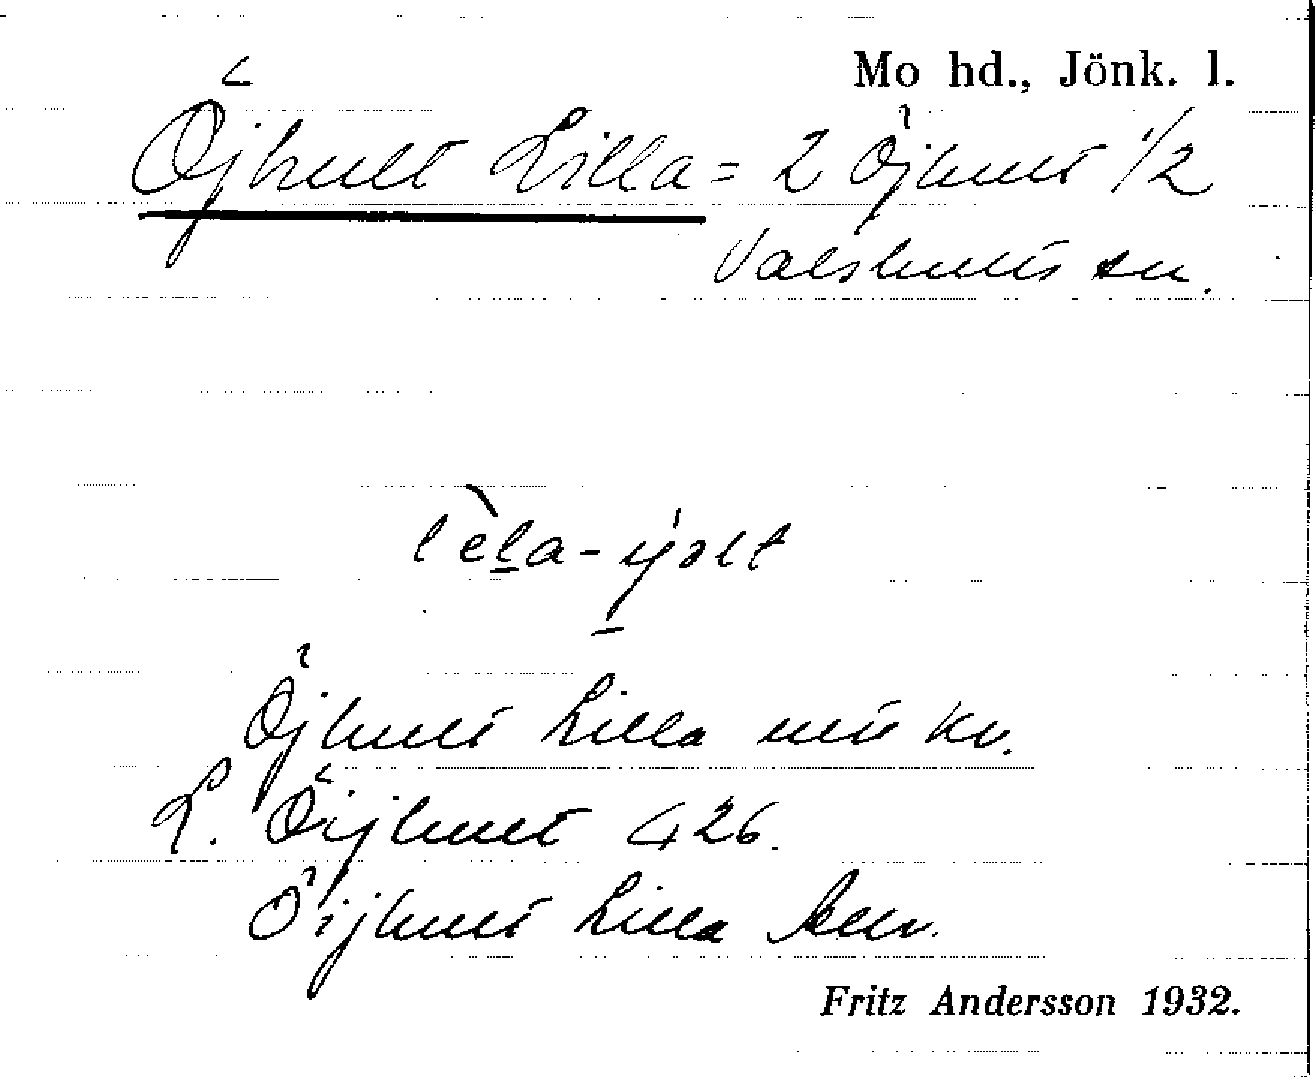 Mo hd., Jönk. l.
Öjhult Lilla = 2 Öjhult 1/2
Valshults sn.
lèla-ýɔlt
Öjhult Lilla
L. Öijhult G 26.
Öijhult Lilla
Fritz Andersson 1932.